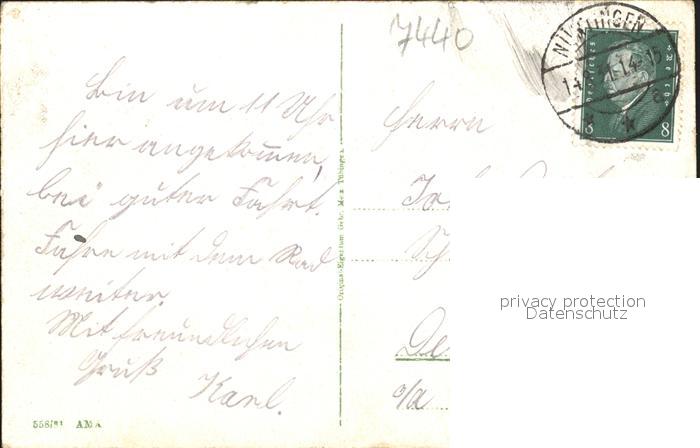 7440
NÜRTINGEN
Bin um 11 Uhr
hier angekommen,
bei guter Fahrt.
Fahre mit dem Rad
weiter.
Mit freundlichen
Gruß Karl.
Herrn
8 8
Original-Eigentum Gebr. Metz Tübingen
privacy protection
Datenschutz
558/31 AMA